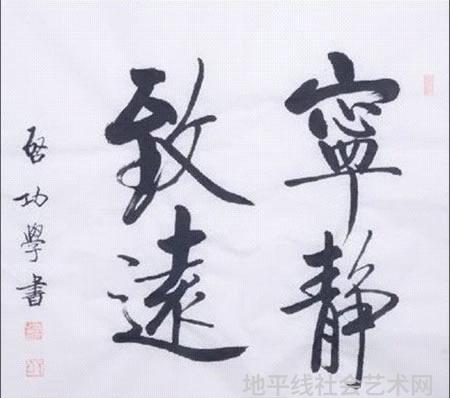 寧靜
致遠
啓功學書
地平线社会艺术网